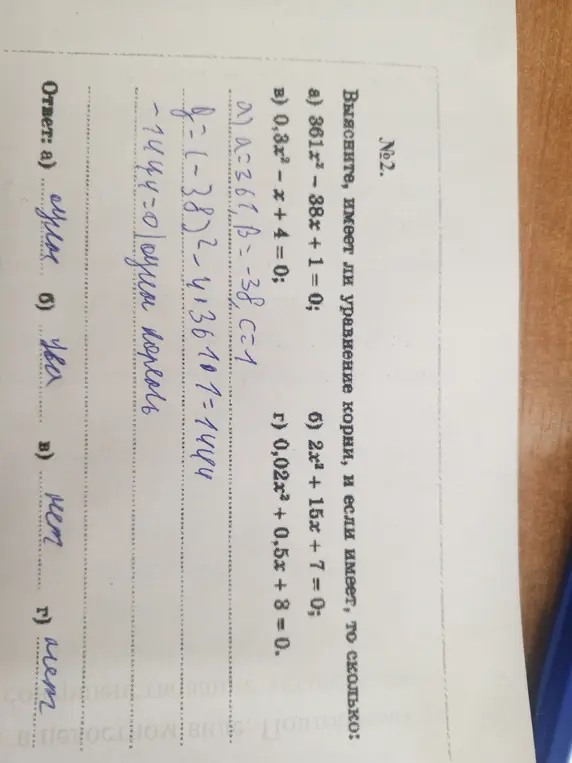 №2.
Выясните, имеет ли уравнение корни, и если имеет, то сколько:
а) 361x² − 38x + 1 = 0; б) 2x² + 15x + 7 = 0;
в) 0,3x² − x + 4 = 0; г) 0,02x² + 0,5x + 8 = 0.
а) a=361, b=-38, c=1
D=(-38)²-4·361·1=1444
-1444=0 | один корень
Ответ: а) один б) два в) нет г) нет